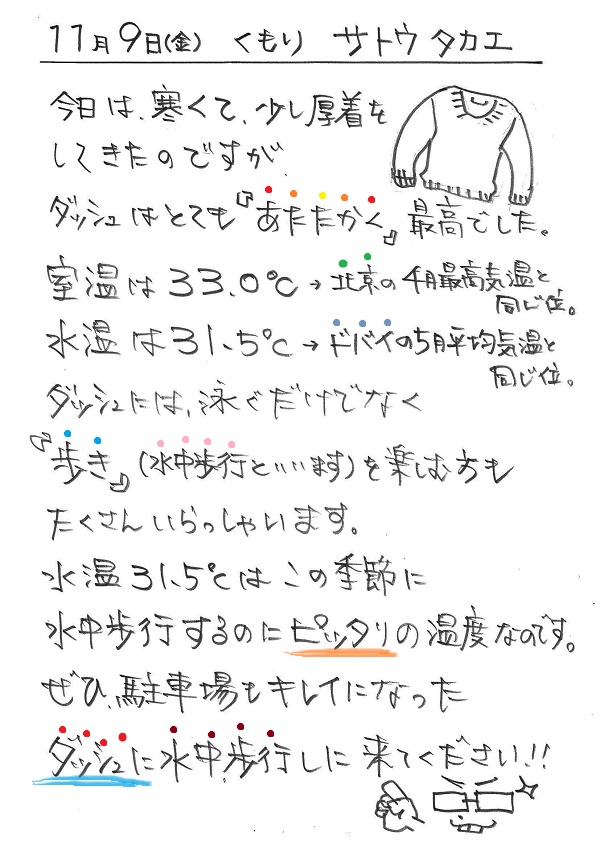 11月9日(金) くもり サトウタカエ
今日は、寒くて、少し厚着を
してきたのですが
ダッシュはとても『あたたかく』最高でした。
室温は33.0℃→北京の4月最高気温と
同じ位。
水温は31.5℃→ドバイの5月平均気温と
同じ位。
ダッシュには、泳ぐだけでなく
『歩き』(水中歩行といいます)を楽しむ方も
たくさんいらっしゃいます。
水温31.5℃はこの季節に
水中歩行するのにピッタリの温度なのです。
ぜひ、駐車場もキレイになった
ダッシュに水中歩行しに来てください!!